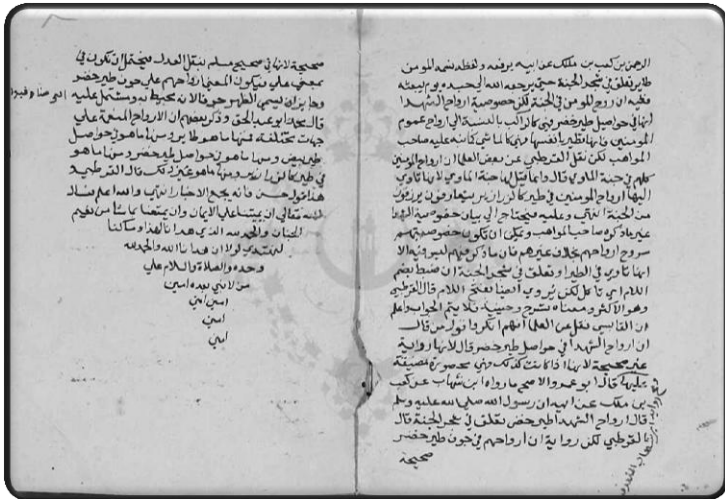 الرحمن بن كعب بن ملك عن ابيه يرفعه ولفظه نسمة المومن
طاير تعلق في شجر الجنة حتى يرجعه الله الى جسده يوم يبعثه
ففيه ان روح المومن في الجنة لكن خصوصية ارواح الشهدا
انها في حواصل طير خضر فهي كالراكب بالنسبة الى ارواح عموم
المومنين فانها تطير بانفسها فهي كالماشي كما نبه عليه صاحب
المواهب لكن نقل القرطبي عن بعض العلما ان ارواح المومنين
كلهم في جنة الماوي قال وانما قيل لها جنة الماوي لانها تاوي
اليها ارواح المومنين في طير
من الجنة انتهى وعليه فيحتاج الى بيان خصوصية الشهدا
غير ما ذكره صاحب المواهب ويمكن ان تكون خصوصيتهم
سروح ارواحهم بخلاف غيرهم فان ما ذكر فيهم ليس فيه الا
انها تاوي في الطير او تعلق في شجر الجنة ان ضبط بضم
اللام اي تاكل لكن يروى ايضا بفتح اللام قال القرطبي
وهو الاكثر ومعناه تسرح وحينيذ فلا يتم الجواب واعلم
ان القابسي نقل عن العلما انهم انكروا قول من قال
ان ارواح الشهدا في حواصل طير خضر قال لانها رواية
غير صحيحة لانها اذا كانت كذلك فهي محصورة مضيقة
عليها قال ابو عمر والاصح ما رواه ابن شهاب عن كعب
بن ملك عن ابيه ان رسول الله صلى الله عليه وسلم
قال ارواح الشهدا طير خضر تعلق في شجر الجنة قال
القرطبي لكن رواية ان ارواحهم في جوف طير خضر
صحيحة
صحيحة لانها في صحيح مسلم بنقل العدل فيحتمل ان تكون في
بمعنى على فيكون المعنى ارواحهم على جوف طير خضر
وجايز ان يسمى الظهر جوفا لانه محيط به ومشتمل عليه
قاله عبد الحق وذكر بعضهم ان الارواح المنعمة على
جهات مختلفة فمنها ما هو طاير ومنها ما هو في حواصل
طير بيض ومنها ما هو في حواصل طير خضر ومنها ما هو
في ومنها ما هو غير ذلك قال القرطبي
هذا قول حسن فانه يجمع الاخبار انتهى والله اعلم نسال
الله تعالى ان يميتنا على الايمان وان يمتعنا بما شا من نعيم
الجنان والحمد لله الذي هدانا لهذا وما كنا
لنهتدي لولا ان هدانا الله والحمد لله
وحده والصلاة والسلام على
من لا نبي بعده امين
امين امين
امين
امين